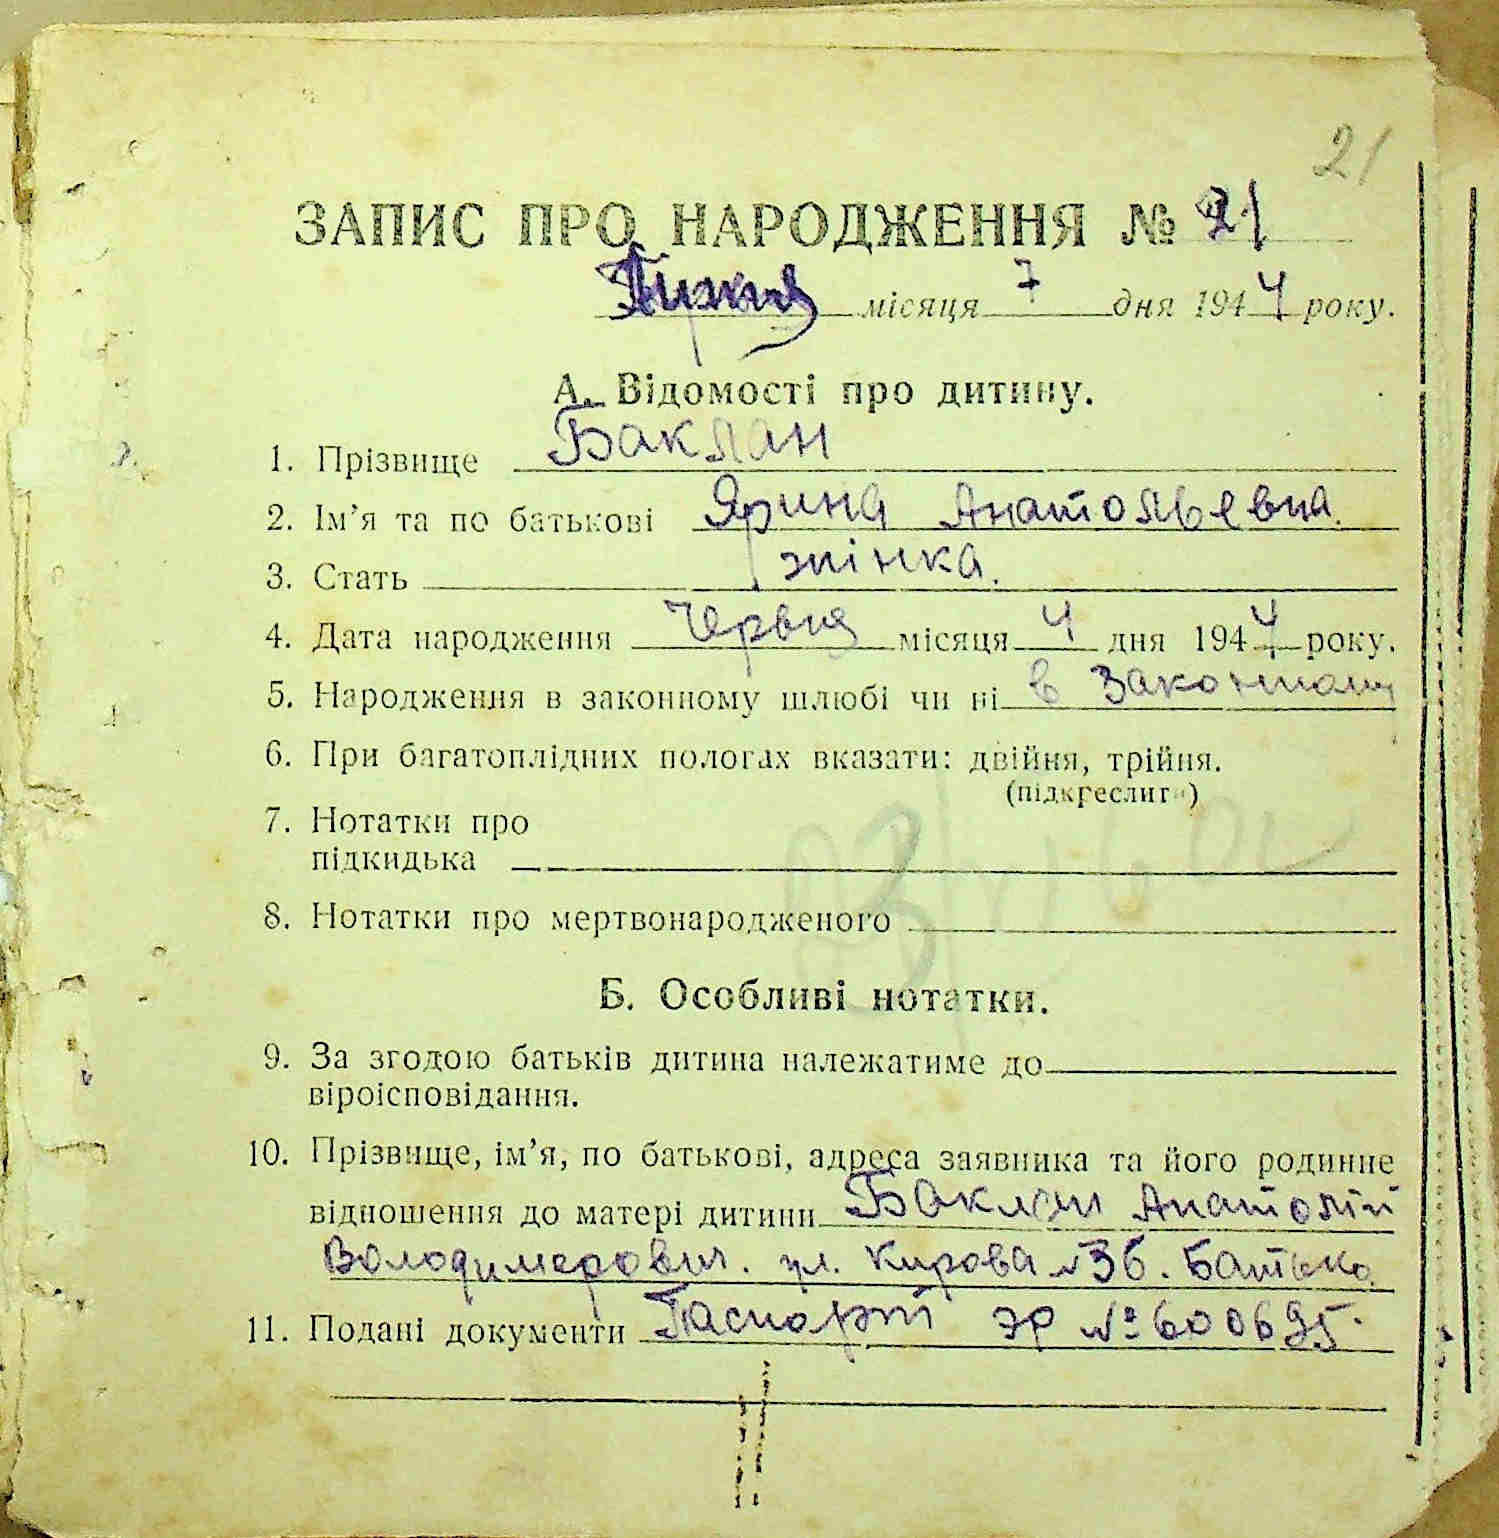 21
ЗАПИС ПРО НАРОДЖЕННЯ № 21
місяця 7 дня 1944 року.
А. Відомості про дитину.
1. Прізвище Баклан
2. Ім’я та по батькові Ярина Анатольевна.
3. Стать жінка.
4. Дата народження Червня місяця 4 дня 1944 року.
5. Народження в законному шлюбі чи ні в законному
6. При багатоплідних пологах вказати: двійня, трійня.
(підкреслити)
7. Нотатки про
підкидька
8. Нотатки про мертвонародженого
Б. Особливі нотатки.
9. За згодою батьків дитина належатиме до
віроісповідання.
10. Прізвище, ім’я, по батькові, адреса заявника та його родинне
відношення до матері дитини Баклан Анатолій
Володимерович. ул. Кирова №36. Батько
11. Подані документи Паспорт ЭР № 600695.